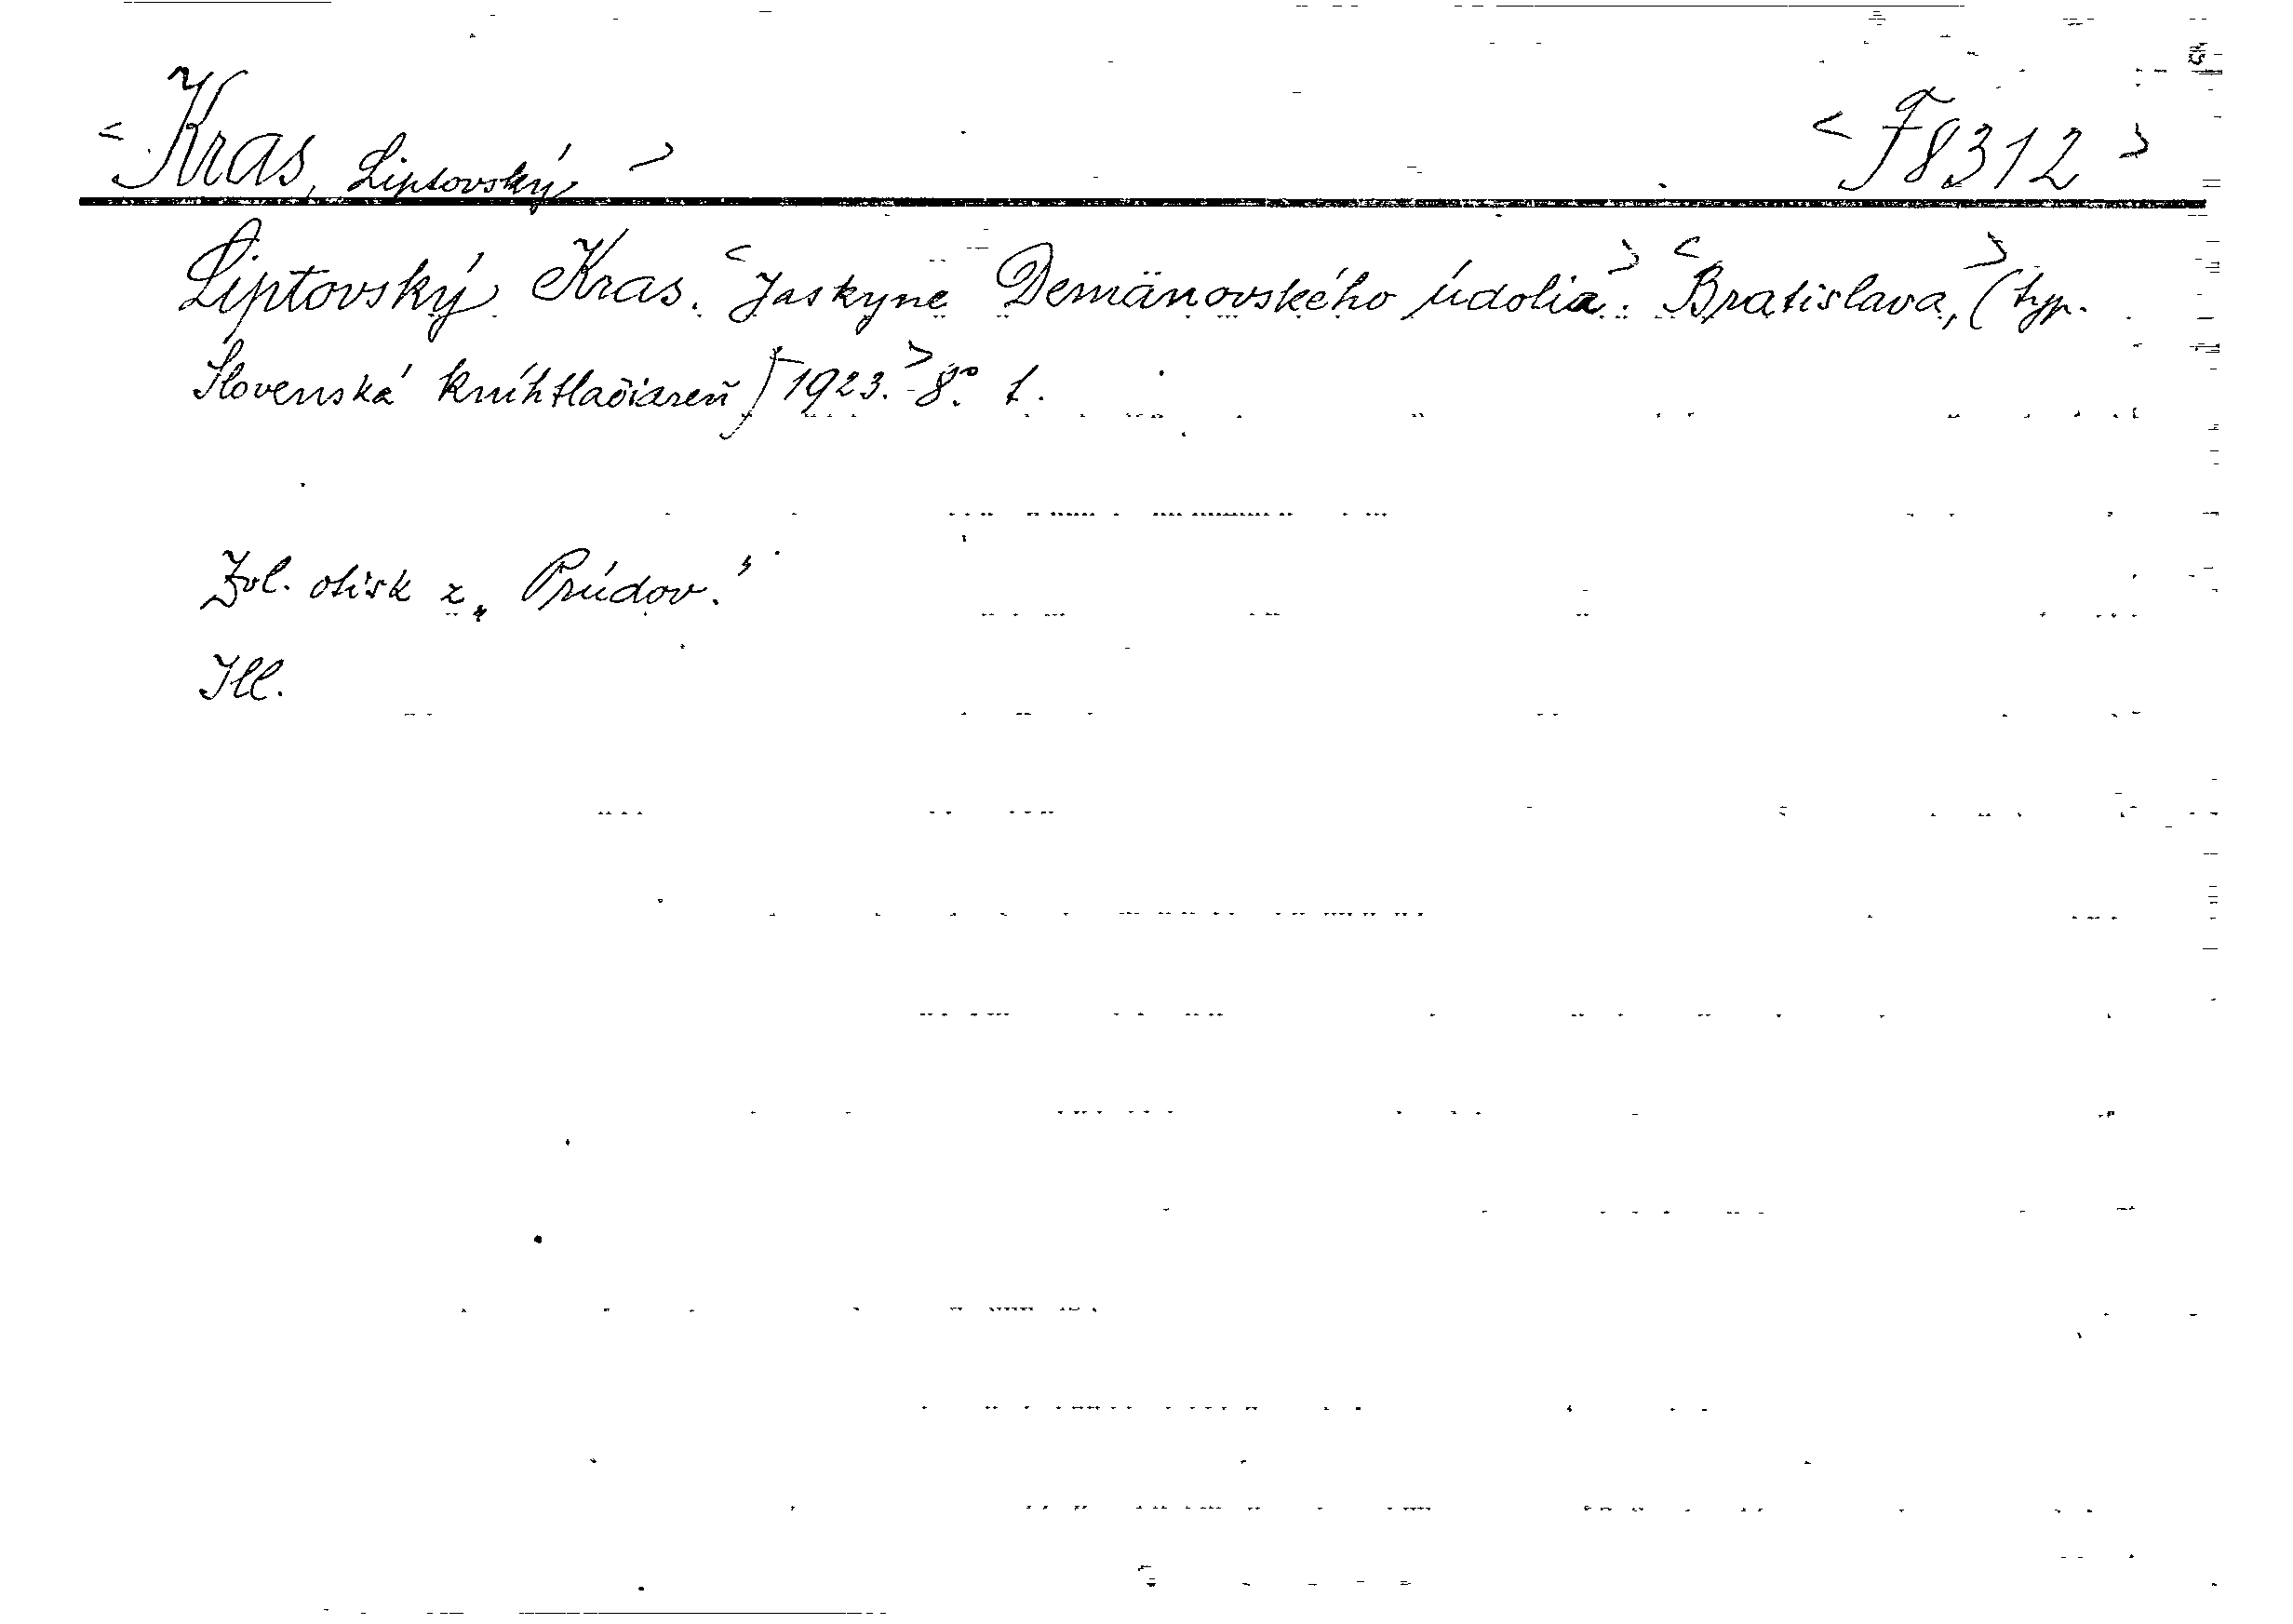 <Kras, Liptovský> <F8312>
Liptovský Kras. <Jaskyne Demänovského údolia>. <Bratislava,> (typ.
Slovenská kníhtlačiareň) 1923.> 8°. f.
Zvl. otisk z „Prúdov."
Ill.